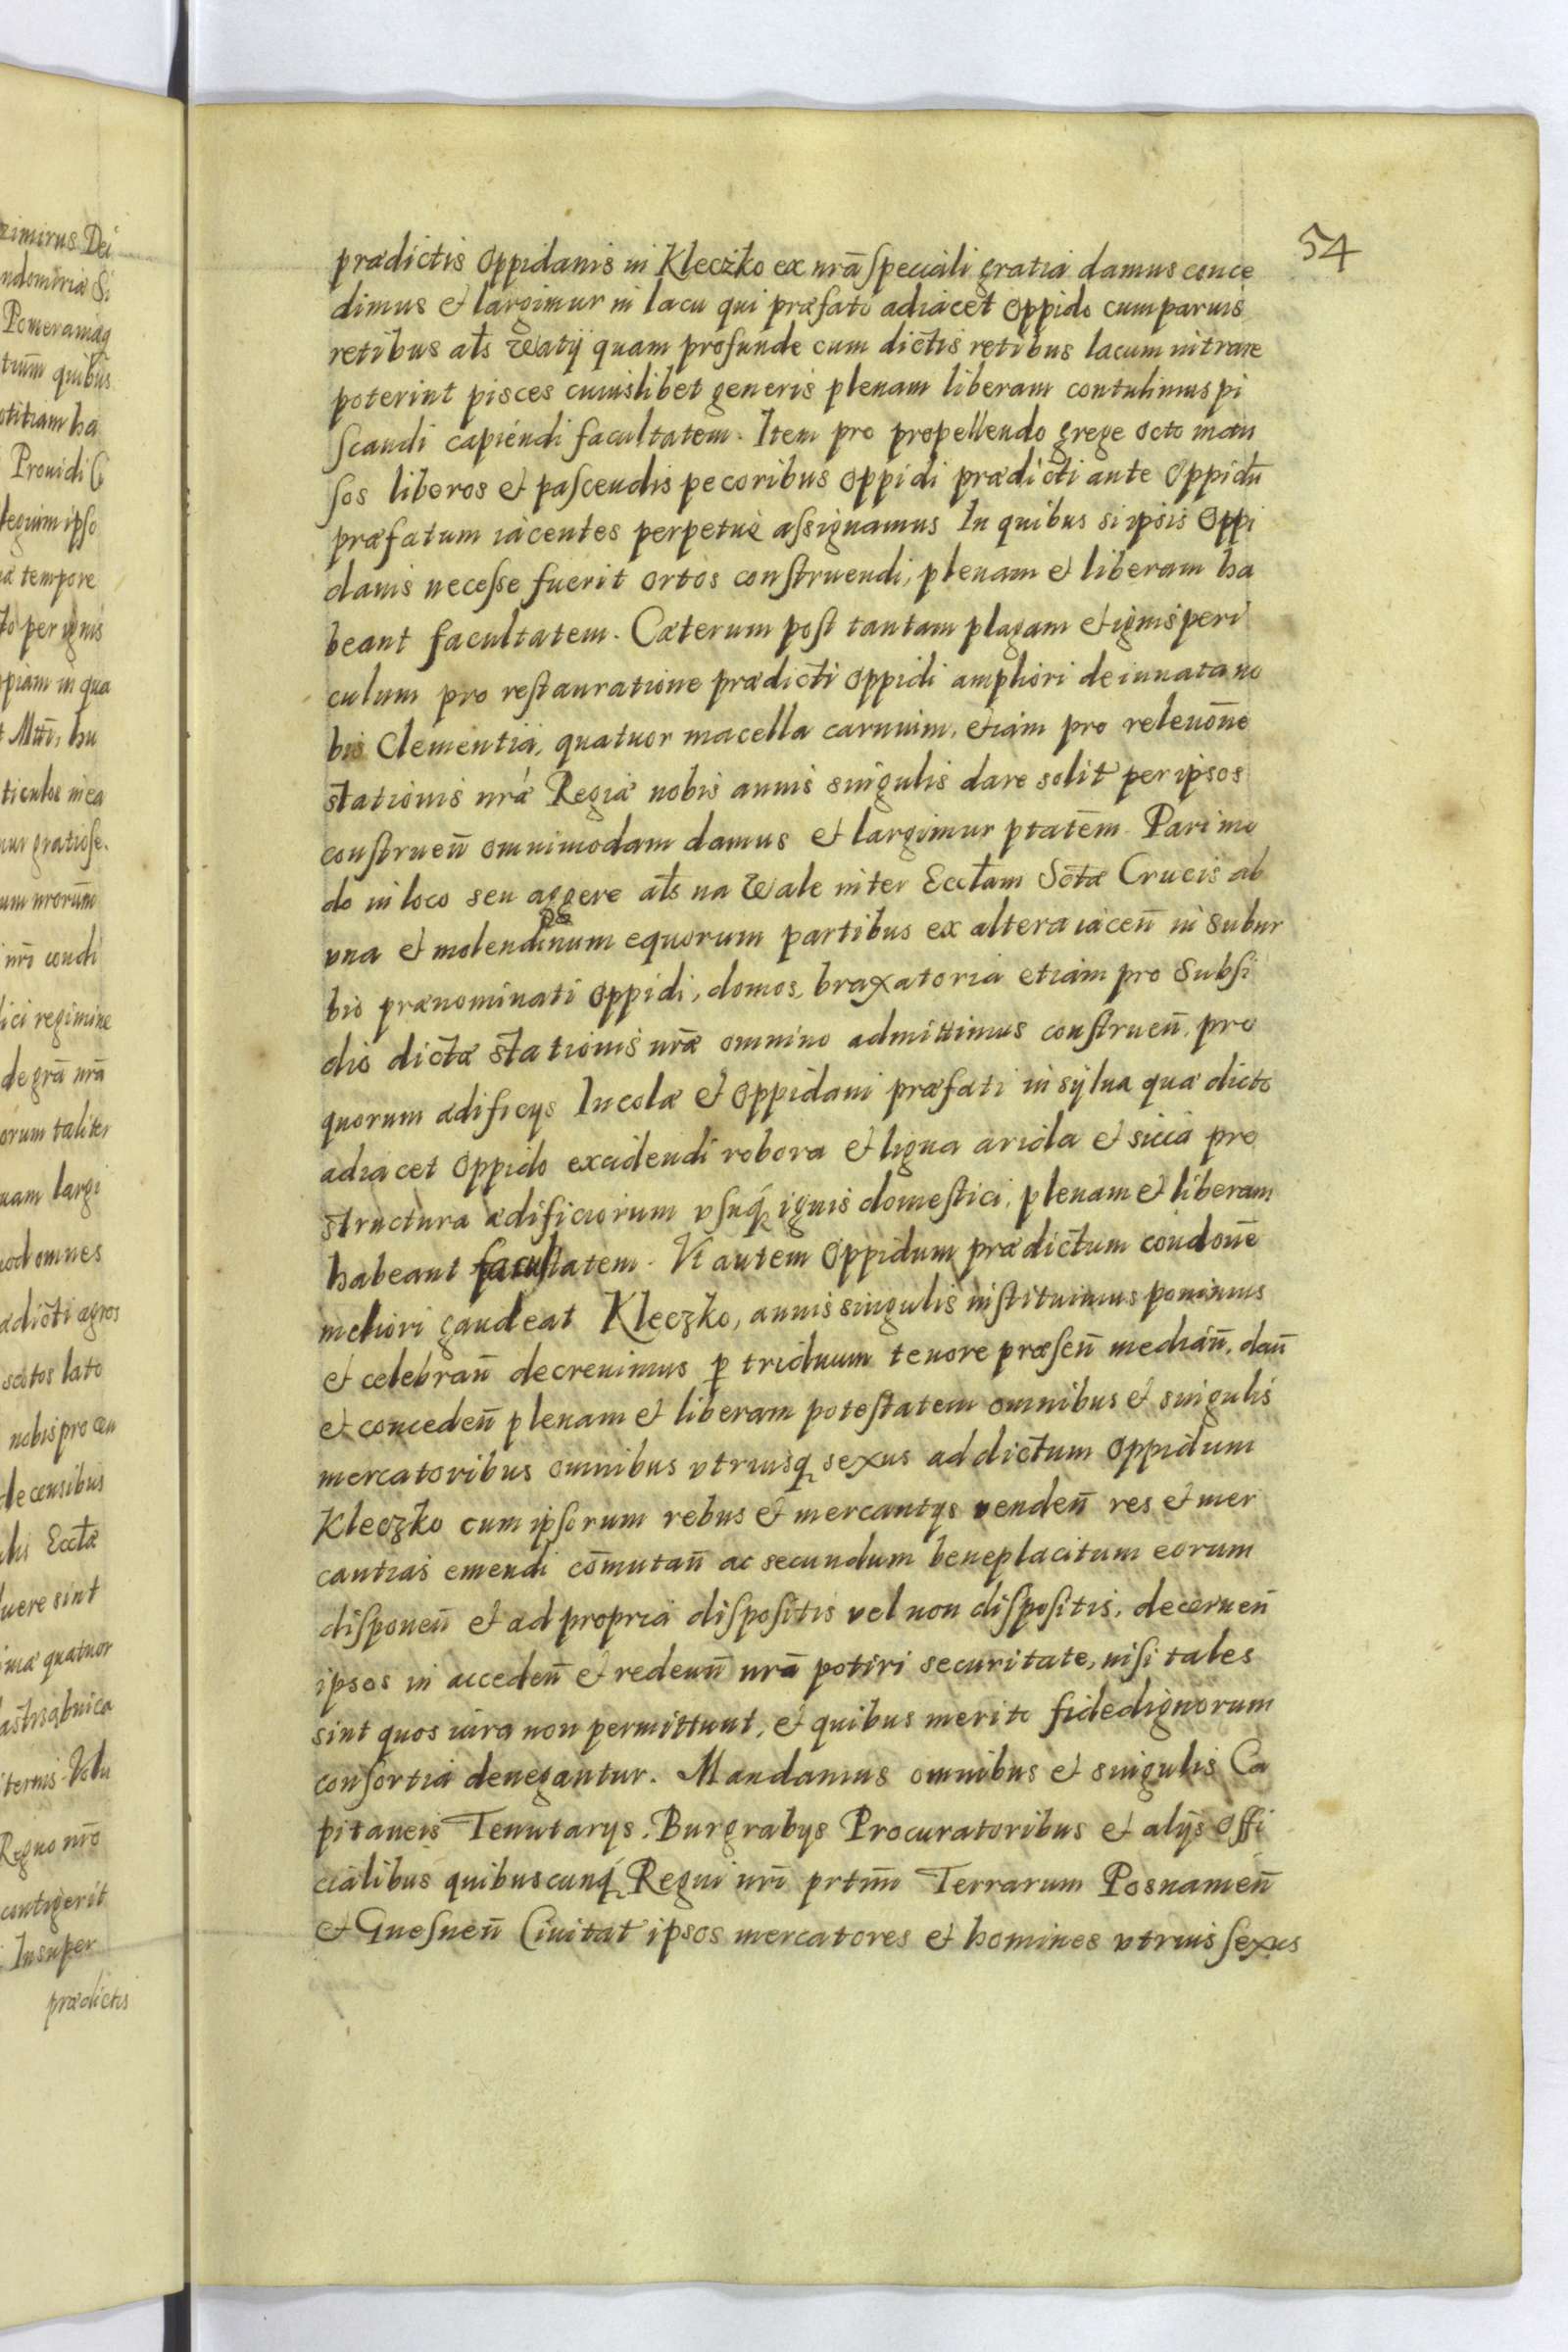 54
prædictis Oppidanis in Kleczko ex nrã speciali gratia damus conce
dimus et largimur in lacu qui præfato adiacet Oppido cum paruis
retibus als Watij quam profunde cum dictis retibus lacum intrare
poterint pisces cuiuslibet generis plenam liberam contulimus pi
scandi capiendi facultatem. Item pro propellendo grege octo man
sos liberos et pascendis pecoribus Oppidi prædicti ante Oppidũ
præfatum iacentes perpetuè assignamus In quibus si ipsis Oppi
danis necesse fuerit ortos construendi, plenam et liberam ha
beant facultatem. Cæterum post tantam plagam et ignis peri
culum pro restauratione prædicti Oppidi ampliori de innata no
bis Clementia, quatuor macella carnium, etiam pro releuoñe
stationis nrã Regiæ nobis annis singulis dare solit per ipsos
construeñ omnimodam damus et largimur ptatẽm. Pari mo
do in loco seu aggere als na Wale inter Eccłam Sctæ Crucis ab
vna et molendinum equorum partibus ex altera iaceñ in subur
bio prænominati Oppidi, domos, braxatoria etiam pro Subsi
dio dictæ stationis nræ omnino admittimus construeñ, pro
quorum ædificijs Incolæ et Oppidani præfati in sylua quæ dicto
adiacet Oppido excidendi robora et ligna arida et sicca pro
structura ædificiorum vsuq́ ignis domestici, plenam et liberam
habeant facultatem. Vt autem Oppidum prædictum condoñe
meliori gaudeat Kleczko, annis singulis instituimus ponimus
et celebrañ decreuimus p triduum tenore præseñ mediañ, dañ
et concedeñ plenam et liberam potestatem omnibus et singulis
mercatoribus omnibus vtriusq́ sexus ad dictum Oppidum
Kleczko cum ipsorum rebus et mercantijs vendeñ res et mer
cantias emendi cõmutañ ac secundum beneplacitum eorum
disponeñ et ad propria dispositis vel non dispositis, decerneñ
ipsos in accedeñ et redeuñ nrã potiri securitate, nisi tales
sint quos iura non permittunt, et quibus merito fidedignorum
consortia denegantur. Mandamus omnibus et singulis Ca
pitaneis Tenutarys, Burgrabys Procuratoribus et alijs offi
cialibus quibuscunq́ Regni nrĩ prtim Terrarum Posnanieñ
et Gnesneñ Ciuitat ipsos mercatores et homines vtrius sexus